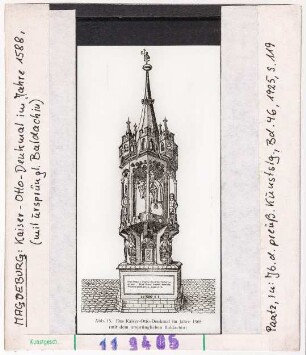 MAGDEBURG: Kaiser-Otto-Denkmal im Jahre 1588,
(mit ursprüngl. Baldachin)
Abb. 15. Das Kaiser-Otto-Denkmal im Jahre 1588
mit dem ursprünglichen Baldachin
Paatz, in: Jb. d. preuß. Kunstslg, Bd. 46, 1925, S. 119
Kunstgesch.
119405